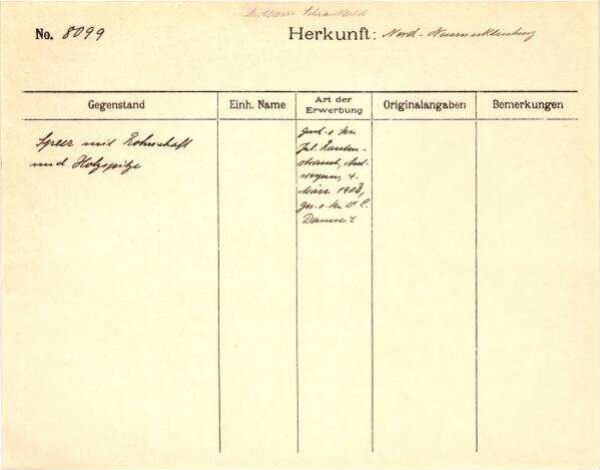 No. 8099
Herkunft: Nord-Neumecklenburg
Gegenstand
Einh. Name
Art der Erwerbung
Originalangaben
Bemerkungen
Speer mit Rohrschaft
und Holzspitze
Jul. Lauten-
4.
März 1908,